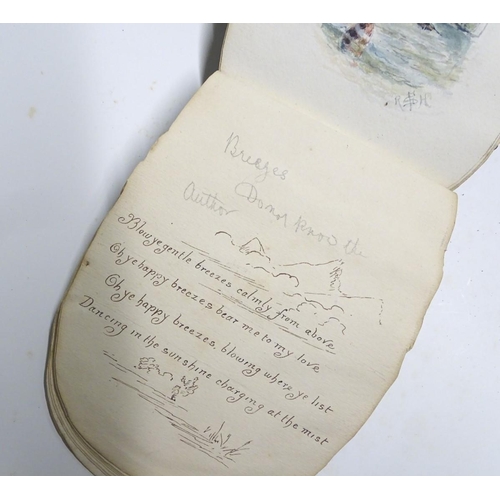 Breezes
Do not know the
Author
Blow ye gentle breezes calmly from above
Oh ye happy breezes bear me to my love
Oh ye happy breezes, blowing where ye list
Dancing in the sunshine charging at the mist